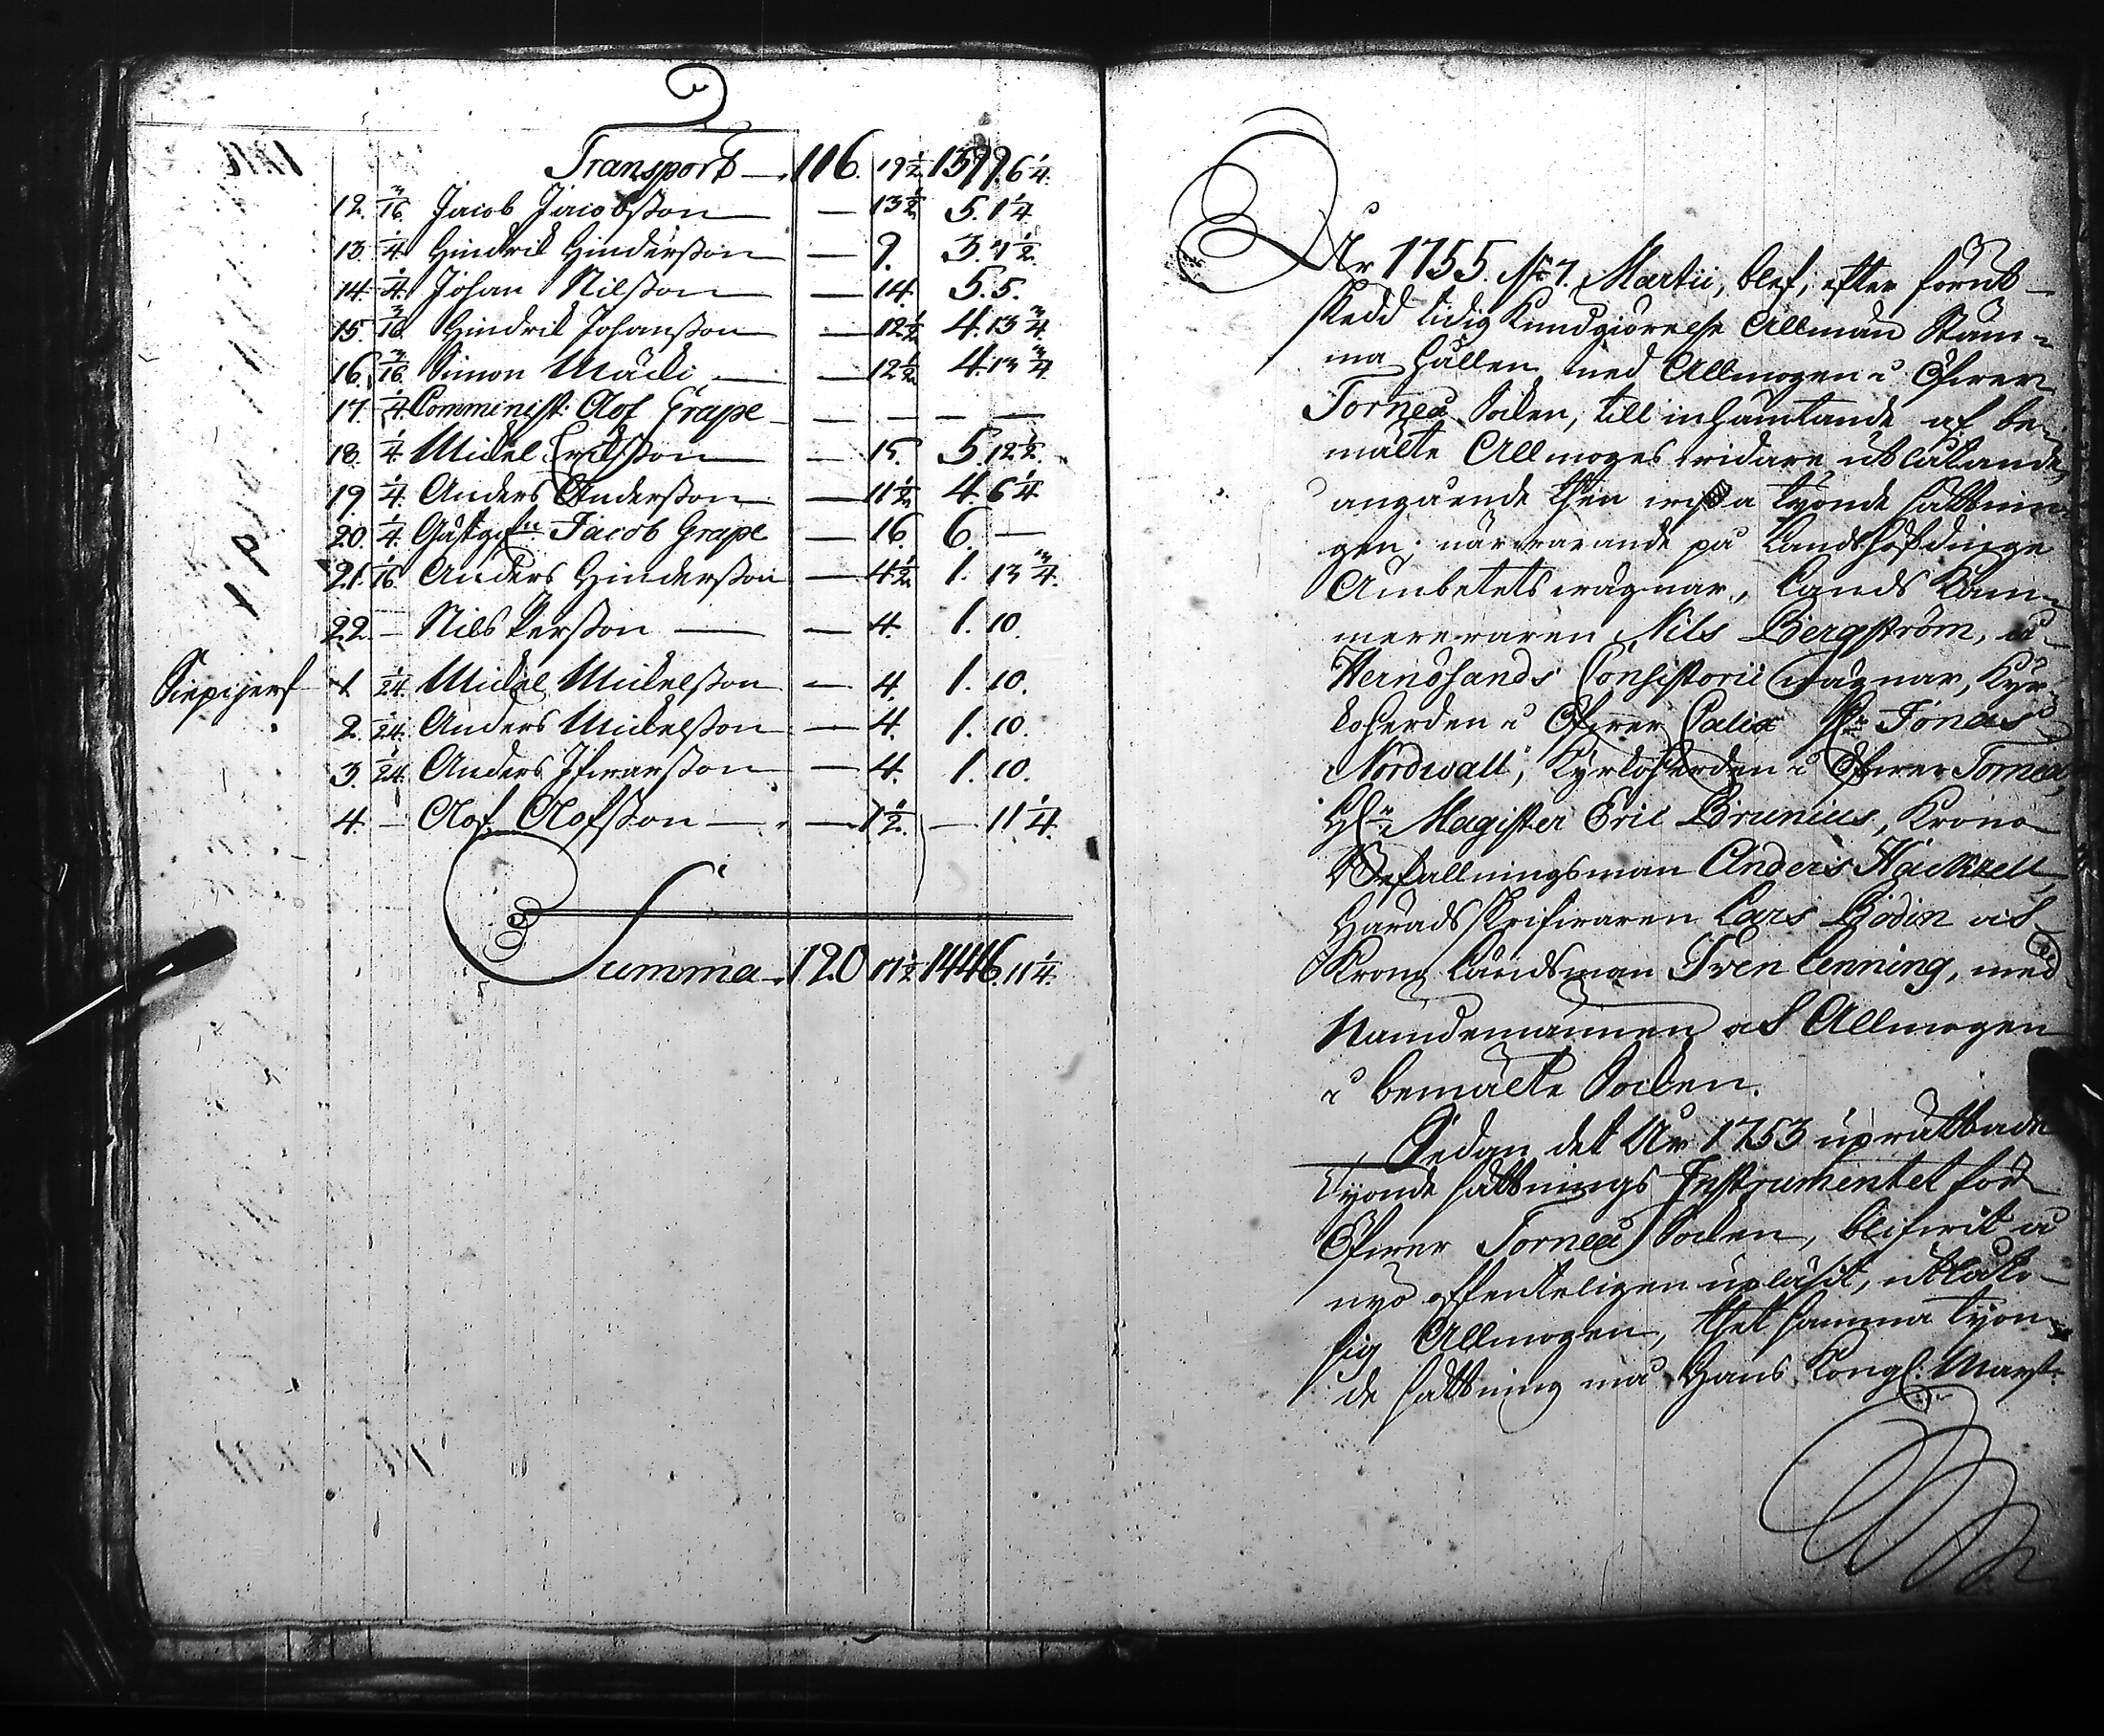 Transport 116. 19½ 1399. 6¼
12. 3/16 Jacob Jacobsson — 13½ 5. 1¼
13. ¼ Hindrik Hindersson — 9. 3. 7½
14. ¼ Johan Nilsson — 14. 5. 5.
15. 3/16 Hindrik Johansson — 12½ 4. 13¾
16. 3/16 Simon Mäcki — 12½ 4. 13¾
17. ¼ Comminist: Olof Grape — — — —
18. ¼ Mickel Ericksson — 15. 5. 12½
19. ¼ Anders Andersson — 11½ 4. 6¼
20. ¼ Gästgifn Jacob Grape — 16. 6. —
21. 1/16 Anders Hindersson — 4½ 1. 13¾
22. — Nils Persson — 4. 1. 10.
Siepijerf 1 1/24 Mickel Mickelsson — 4. 1. 10.
2. 1/24 Anders Mickelsson — 4. 1. 10.
3. 1/24 Anders Ifwarsson — 4. 1. 10.
4. — Olof Olofsson — 1½ — 11¼
Summa 120 11½ 1446. 11¼
År 1755. d. 7. Martii, blef, efter förut
skedd tidig Kundgiörelse Allmän Stäm=
ma hållen med Allmogen i Öfwer
Torneå Sokn, till inhämtande af be=
mälte Allmoges widare utlåtande,
angående then wissa Tyonde sättnin
gen; närwarande på Landshöfdinge
Ämbetets wägnar, Lands Cam=
mereraren Nils Bergström, å
Hernösands Consistorii wägnar, Kyr=
koherden i Öfwer Calix Hr Jonas
Nordwall, Kyrkoherden i Öfwer Torneå,
Hr Magister Eric Brunius, Krono
Befallningsman Anders Häckzell,
Härads Skrifwaren Lars Bodin och
Krono Länsman Sven Lenning, med
Nämdemännen och Allmogen
i bemälte Sokn.
Sedan det År 1753 uprättade
Tyonde sättnings Instrumentet för
Öfwer Torneå Sokn, blifwit å
nyo offenteligen upläsit, utlåto
sig Allmogen, thet samma Tyon=
de sättning må Hans Kongl. Mayst: